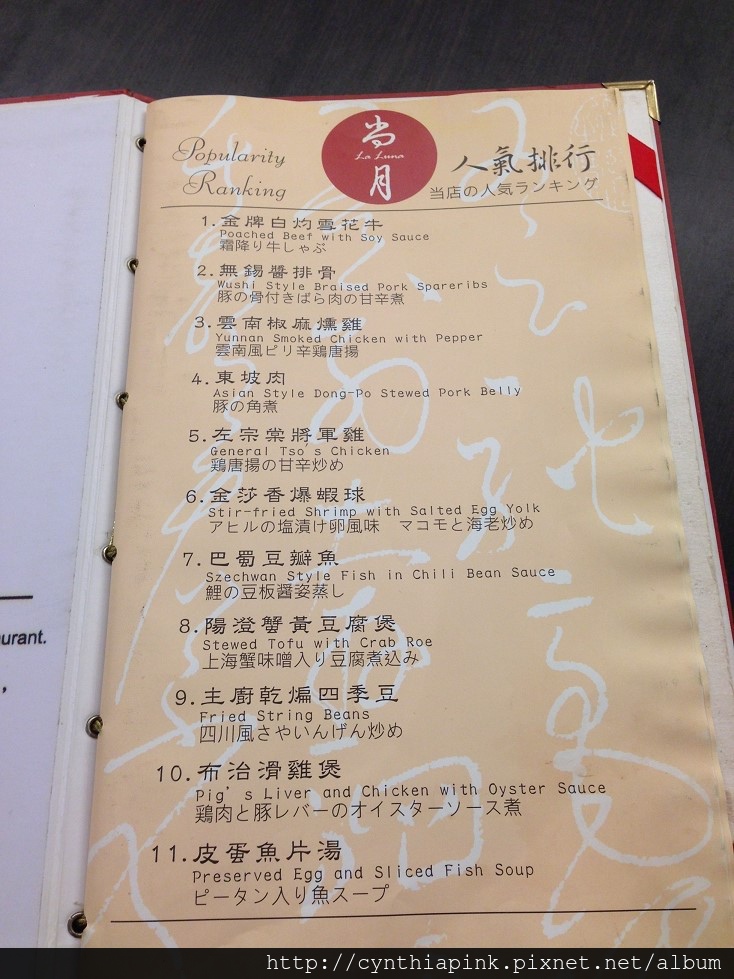 Popularity
Ranking
当月
La Luna
人氣排行
当店の人気ランキング
1.金牌白灼雪花牛
Poached Beef with Soy Sauce
霜降り牛しゃぶ
2.無錫醬排骨
Wushi Style Braised Pork Spareribs
豚の骨付きばら肉の甘辛煮
3.雲南椒麻燻雞
Yunnan Smoked Chicken with Pepper
雲南風ピリ辛鶏唐揚
4.東坡肉
Asian Style Dong-Po Stewed Pork Belly
豚の角煮
5.左宗棠將軍雞
General Tso's Chicken
鶏唐揚の甘辛炒め
6.金莎香爆蝦球
Stir-fried Shrimp with Salted Egg Yolk
アヒルの塩漬け卵風味 マコモと海老炒め
7.巴蜀豆瓣魚
Szechwan Style Fish in Chili Bean Sauce
鯉の豆板醤姿蒸し
8.陽澄蟹黃豆腐煲
Stewed Tofu with Crab Roe
上海蟹味噌入り豆腐煮込み
9.主廚乾煸四季豆
Fried String Beans
四川風さやいんげん炒め
10.布治滑雞煲
Pig's Liver and Chicken with Oyster Sauce
鶏肉と豚レバーのオイスターソース煮
11.皮蛋魚片湯
Preserved Egg and Sliced Fish Soup
ピータン入り魚スープ
urant.
,
http://cynthiapink.pixnet.net/album